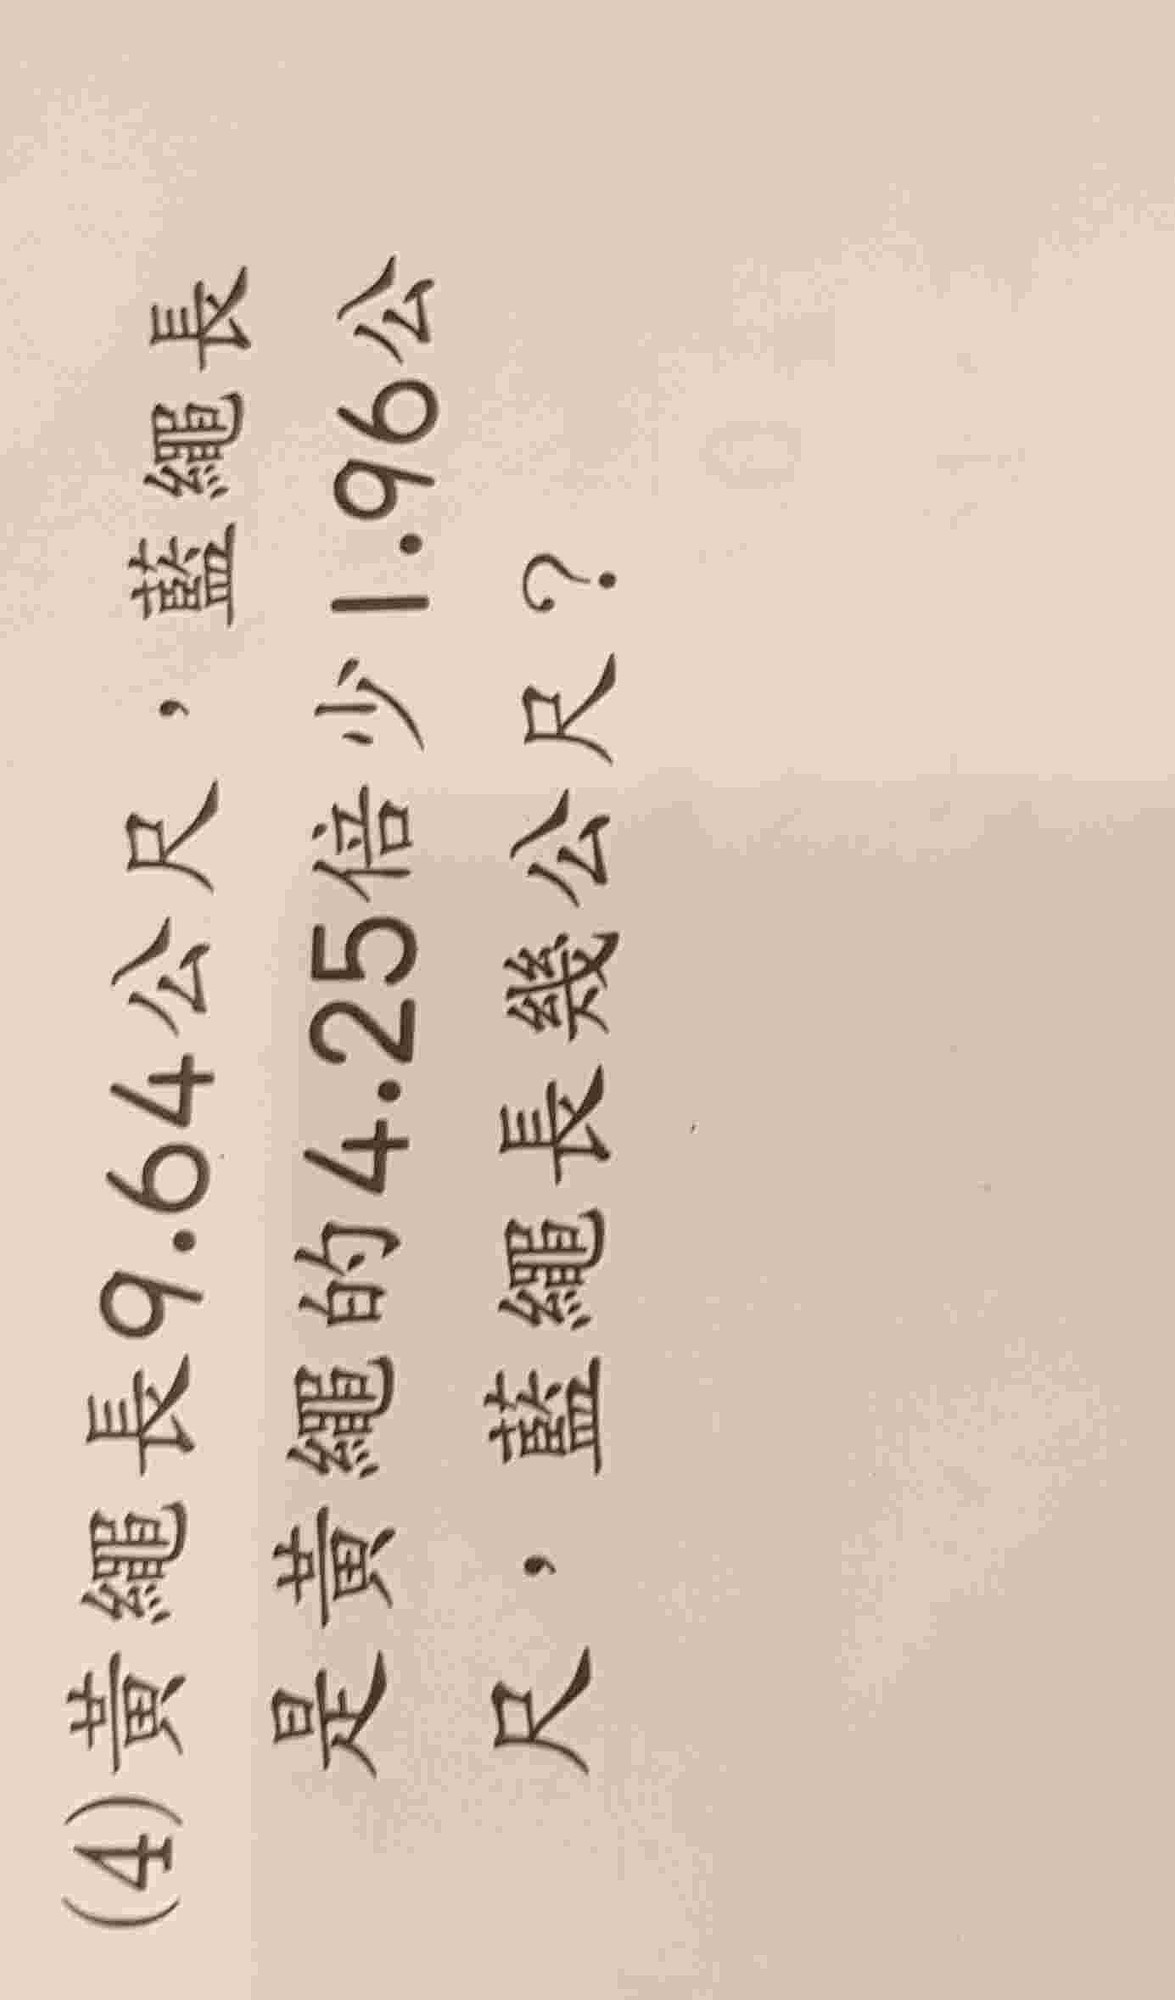 (4)黃繩長9.64公尺,藍繩長
是黃繩的4.25倍少1.96公
尺,藍繩長幾公尺?